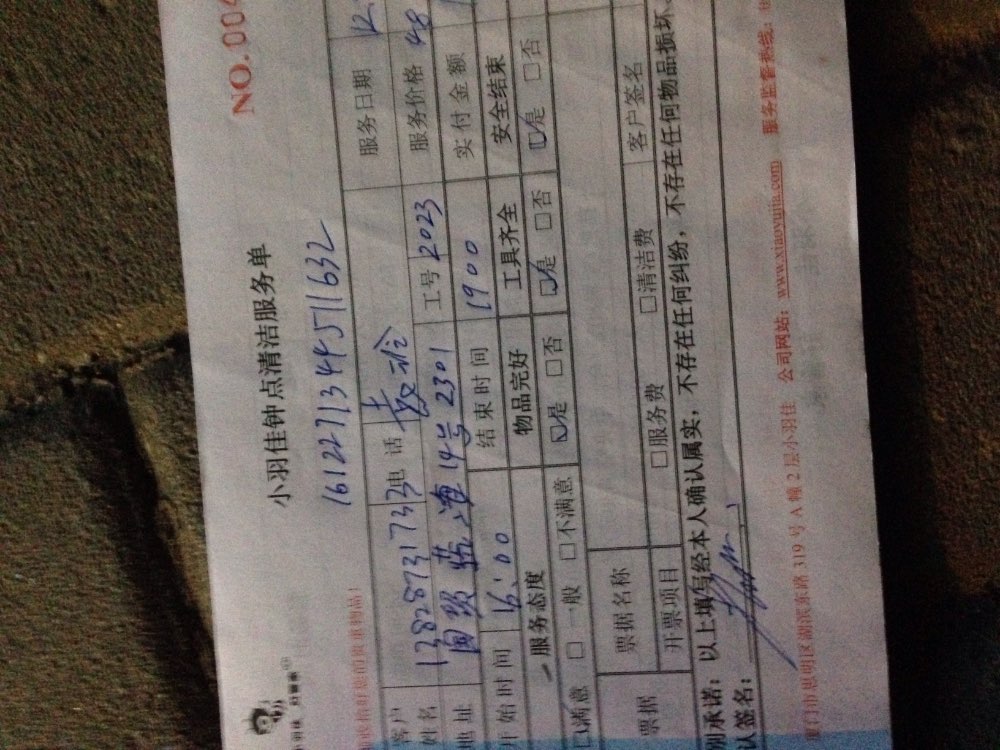 NO.004
小羽佳钟点清洁服务单
161227134451632
收拾好您的贵重物品!
客户姓名 13828731733 电话 服务日期 12
地址 14号2301 工号 2023 服务价格 48
开始时间 16:00 结束时间 1900 实付金额
服务态度 物品完好 工具齐全 安全结束
☑满意 □一般 □不满意 ☑是 □否 ☑是 □否 ☑是 □否
票据 票据名称 客户签名
开票项目 □服务费 □清洁费
别承诺：以上填写经本人确认属实，不存在任何纠纷，不存在任何物品损坏、
认签名：
厦门市思明区湖滨东路319号A幢2层小羽佳 公司网站：www.xiaoyujia.com 服务监督热线：